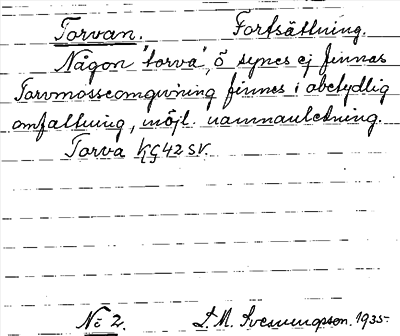 Torvan. Fortsättning.
Någon "torva", ö synes ej finnas
Torvmosseomgivning finnes i obetydlig
omfattning, möjl. namnanledning.
Torva KG42 SV.
No 2. L.M. Svenungsson. 1935.